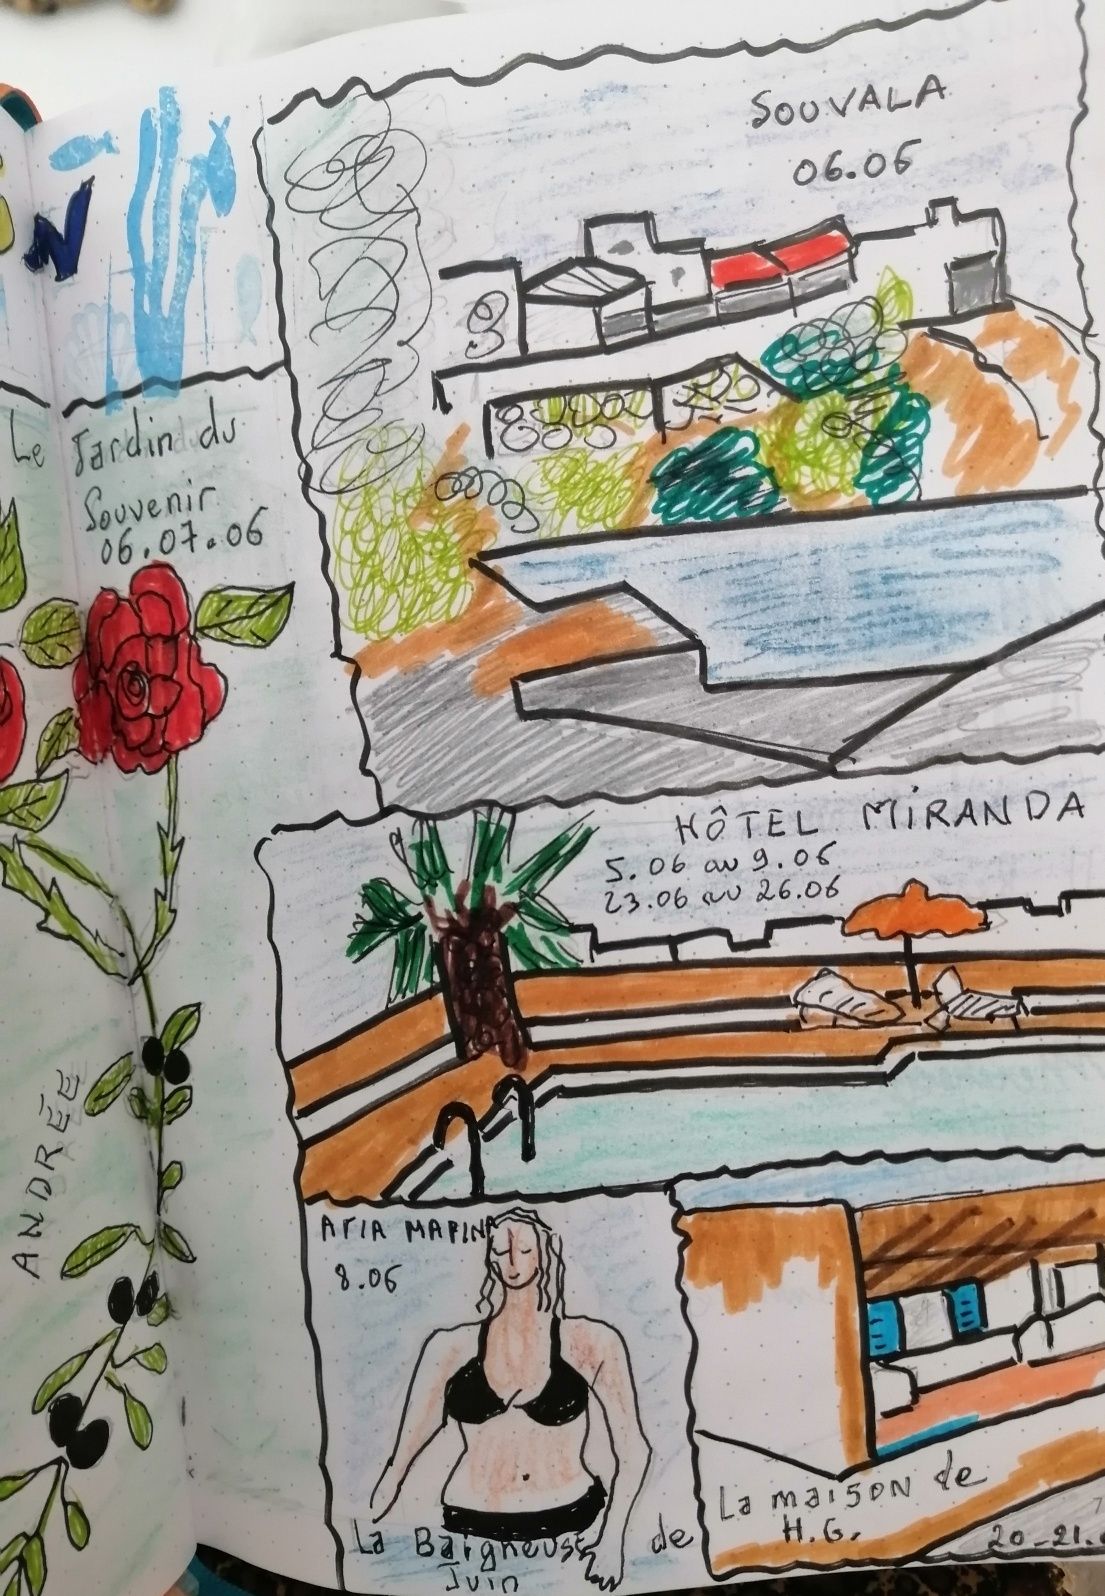 N
Le Jardin du
Souvenir
06.07.06
ANDRÉE
SOUVALA
06.06
HÔTEL MIRANDA
5.06 au 9.06
23.06 au 26.06
AΓIA MAPINA
8.06
La Baigneuse de
Juin
La maison de
H.G.
20-21.